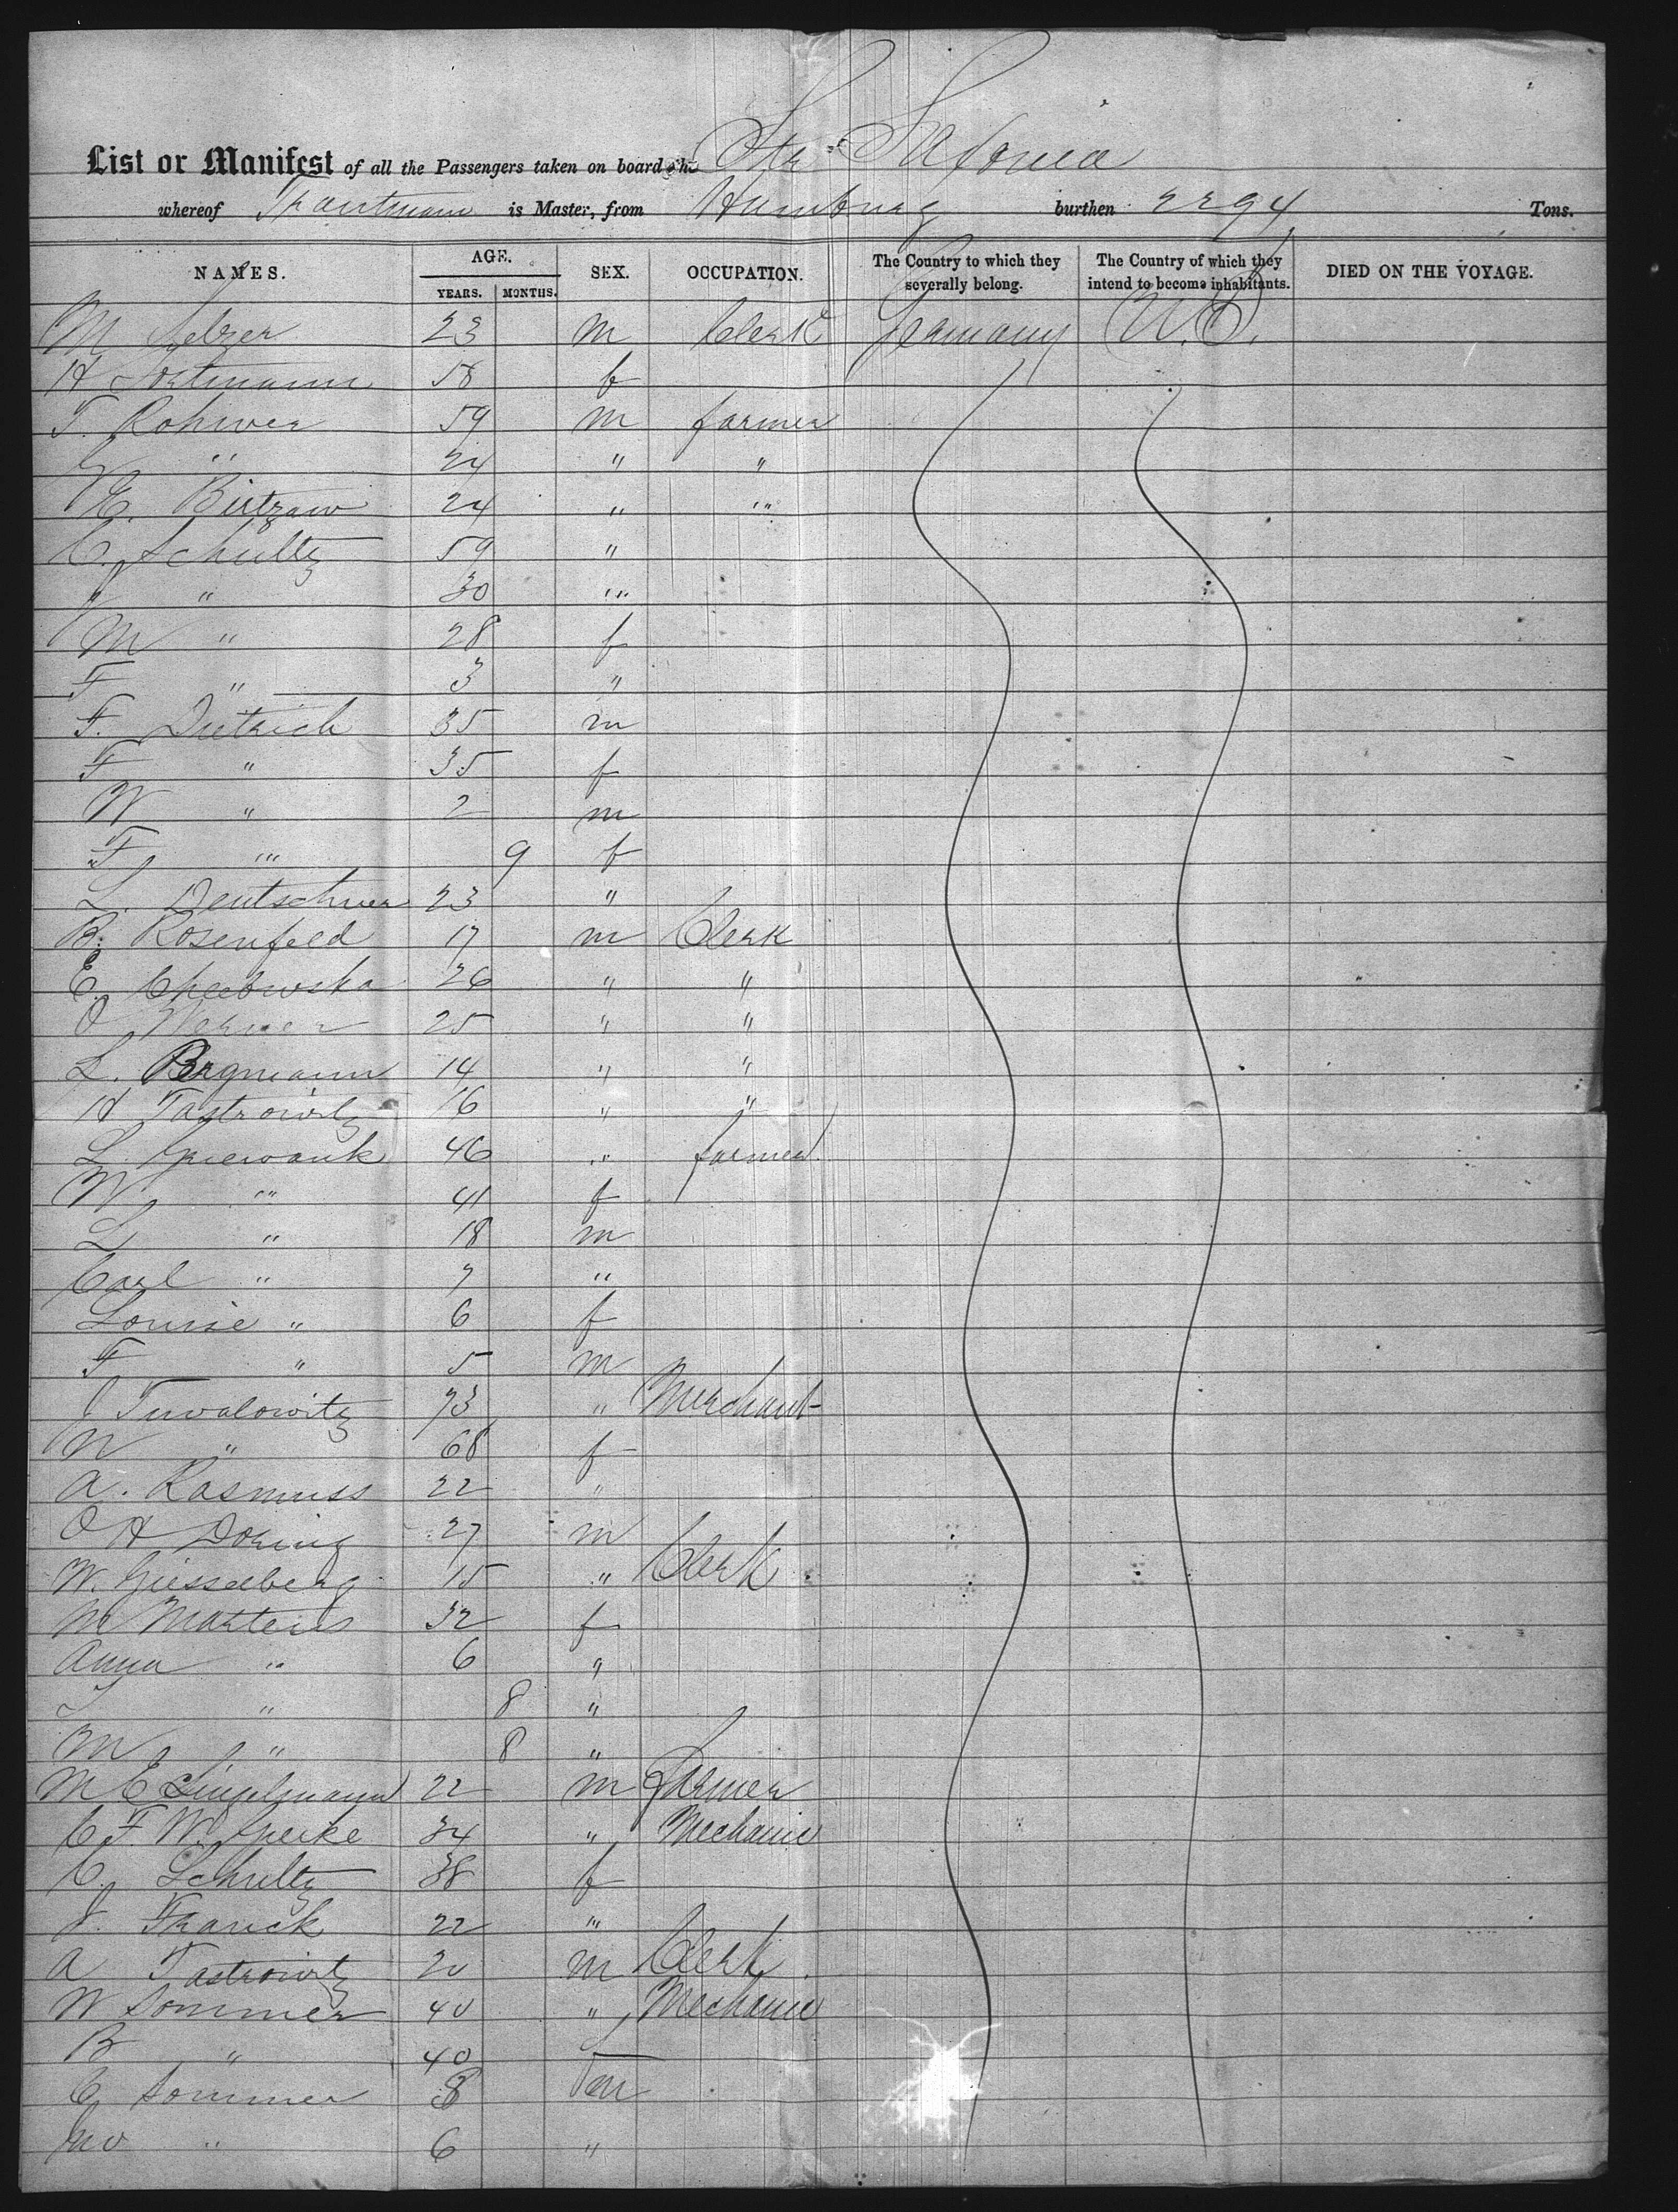 List or Manifest of all the Passengers taken on board the Str Saxonia
whereof Trautmann is Master, from Hamburg burthen 2294 Tons.
NAMES. AGE. YEARS. MONTHS. SEX. OCCUPATION. The Country to which they severally belong. The Country of which they intend to become inhabitants. DIED ON THE VOYAGE.
M Selzer 23 m Clerk Germany U.S.
H Sortmann 58 f
T. Rohwer 59 m farmer
" 24 " "
Bützow 24 " "
C. Schultz 59 "
J " 30 "
M " 28 f
F " 3 "
F. Dietrich 35 m
F " 35 f
W " 2 m
F " 9 f
L. Deutschner 23 "
B. Rosenfeld 17 m Clerk
E. 26 " "
O Werner 25 " "
L. Bergmann 14 " "
H Tastrowitz 16 " "
L. Griewank 46 " farmer
W " 41 f
L " 18 m
Carl " 7 "
Louise " 6 f
F " 5 m
J Tuvalowitz 73 " Merchant
N " 68 f
A. Rasmuss 22 "
O H Doring 27 m
W. Giesselberg 15 " Clerk
M Martens 32 f
Anna " 6 "
" 8 "
M " 8 "
M E Lingelmann 22 m farmer
C F. W. Specke 34 " Mechanic
C. Schultz 38 f
J. Franck 22 "
A Tastrowitz 20 m Clerk
W Sommer 40 " Mechanic
B " 40 f
C Sommer 8 m
" 6 "